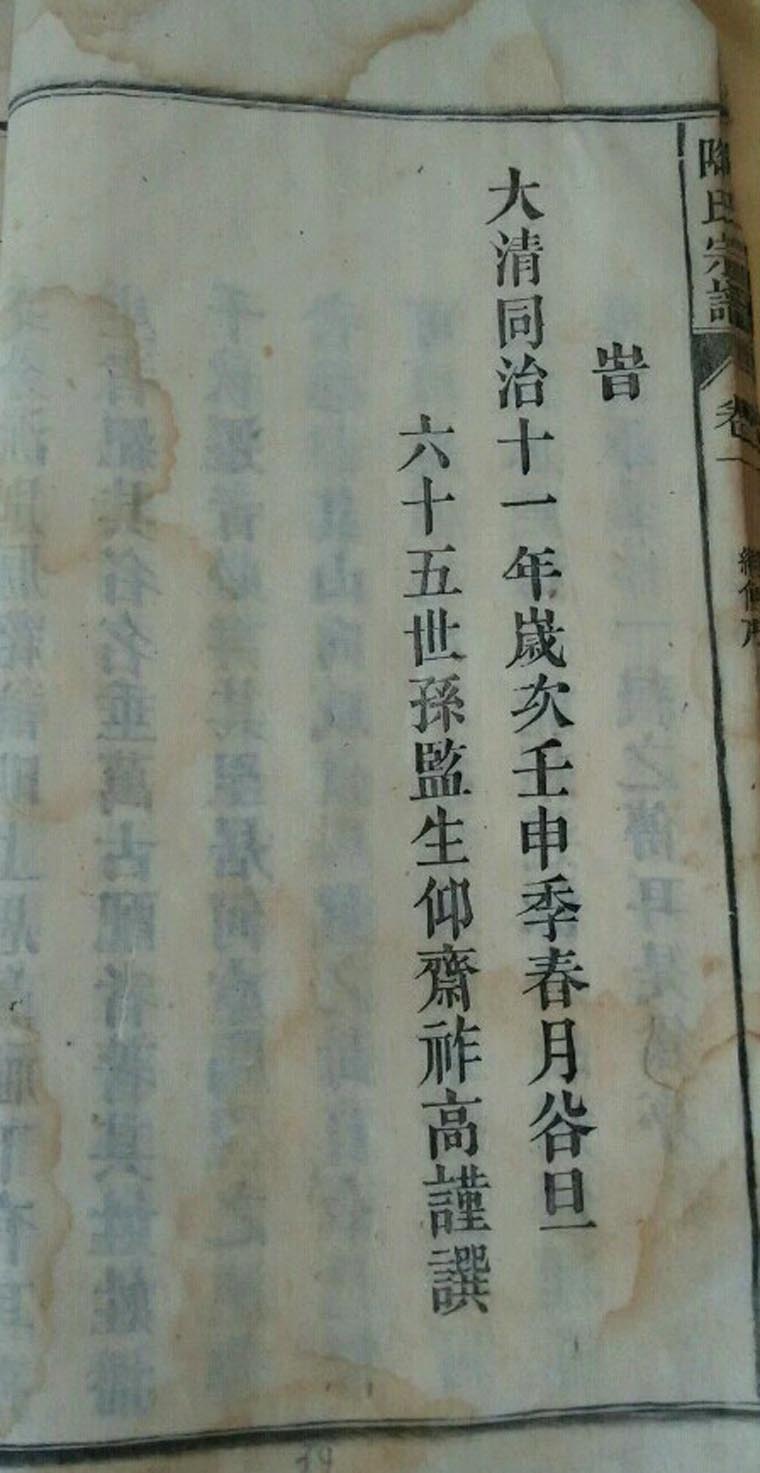 氏宗譜
卷一
旹
大清同治十一年歲次壬申季春月谷旦
六十五世孫監生仰齋祚高謹譔
19